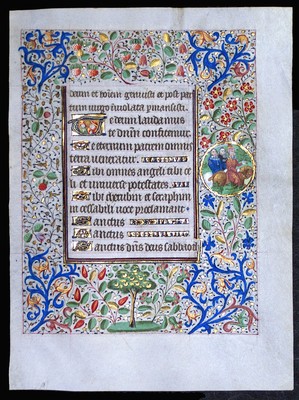 deum et hominem genuisti et post par
tum virgo inviolata permansisti.
Te deum laudamus
te dnm confitemur.
Te eternum patrem omnis
terra veneratur.
Tibi omnes angeli tibi ce
li et universe potestates.
Tibi cherubin et seraphim
incessabili voce proclamant.
Sanctus
Sanctus
Sanctus dns deus sabaoth